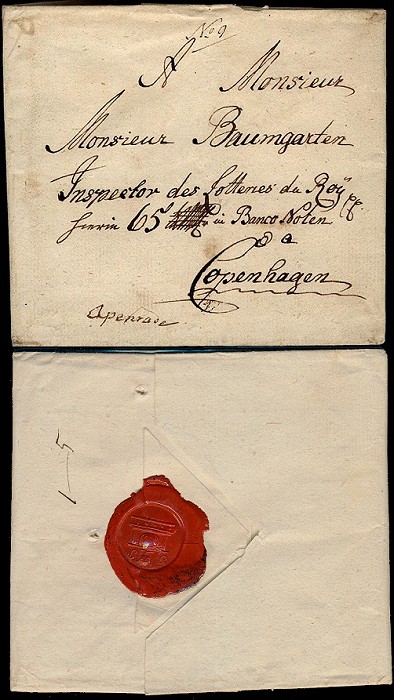 No 9
A Monsieur
Monsieur Baumgarten
Inspector des Lotteries du Roÿ
hierin 65 in Banco Noten
a
Copenhagen
Apenrade
1–5